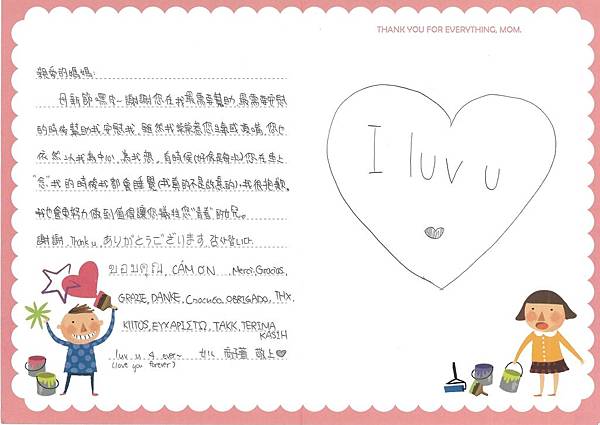 親愛的媽媽:
母親節嘿皮~謝謝您在我最需要幫助、最需要安慰
的時候幫助我、安慰我。雖然我常惹您生氣或 您也
依然以我為中心、為我想。有時候(好像是每次)您在
"念"我的時候我都會睡覺(我真的不是故意的),我很抱歉。
我也會努力做到值得讓您犧牲您"青春"的女兒。
謝謝、Thank u、ありがとうございます、감사합니다
ขอบคุณ, CÁM ƠN, Merci, Gracias,
GRAZIE, DANKE, Спасибо, OBRIGADO, THX,
KIITOS, ΕΥΧΑΡΙΣΤΩ, TAKK, TERIMA
KASIH
luv u 4 ever~ 女兒 敬上♡
(love you forever)
THANK YOU FOR EVERYTHING, MOM.
I luv u